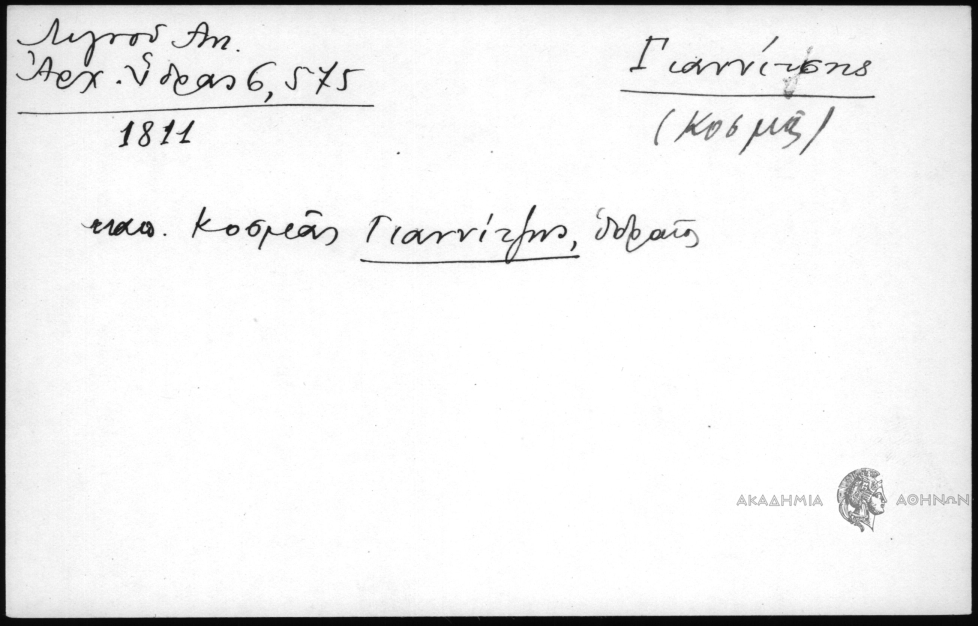 Λιγνοῦ Ἀν.
Ἀρχ. Ὕδρας 6, 575
1811
Γιαννίτσης
(Κοσμᾶς)
καπ. Κοσμᾶς Γιαννίτζης, ὑδραῖος
ΑΚΑΔΗΜΙΑ ΑΘΗΝΩΝ